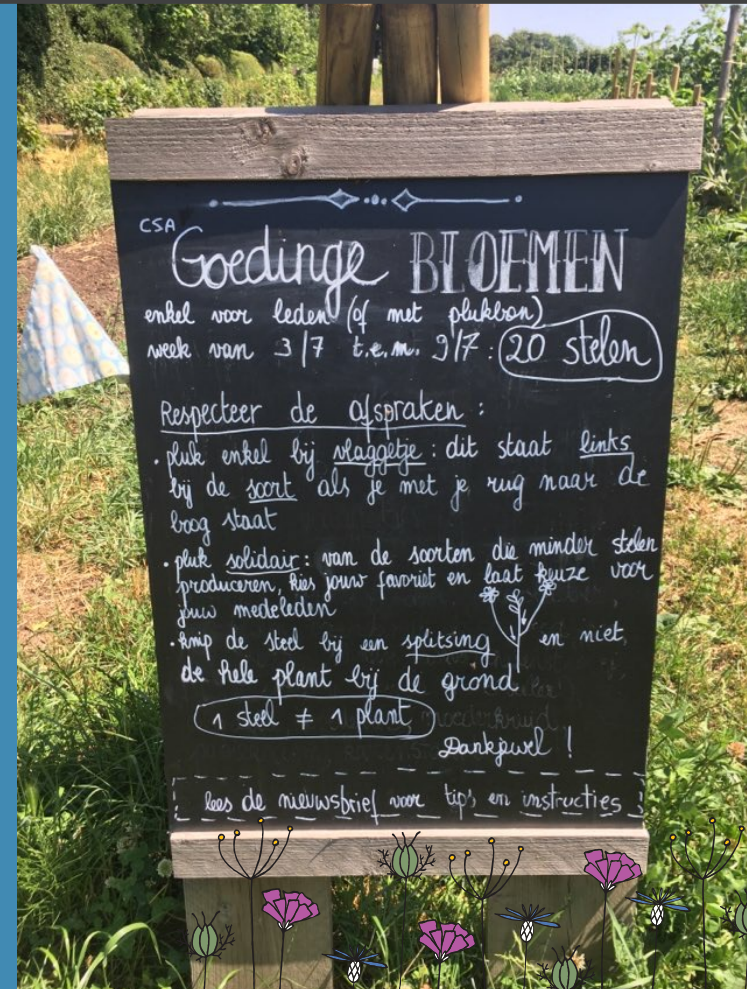 CSA
Goedinge BLOEMEN
enkel voor leden (of met plukbon)
week van 3/7 t.e.m. 9/7 : 20 stelen
Respecteer de afspraken :
• pluk enkel bij vlaggetje : dit staat links
bij de soort als je met je rug naar de
boog staat
• pluk solidair : van de soorten die minder stelen
produceren, kies jouw favoriet en laat keuze voor
jouw medeleden
• knip de steel bij een splitsing en niet,
de hele plant bij de grond
1 steel ≠ 1 plant
Dankjewel !
lees de nieuwsbrief voor tips en instructies